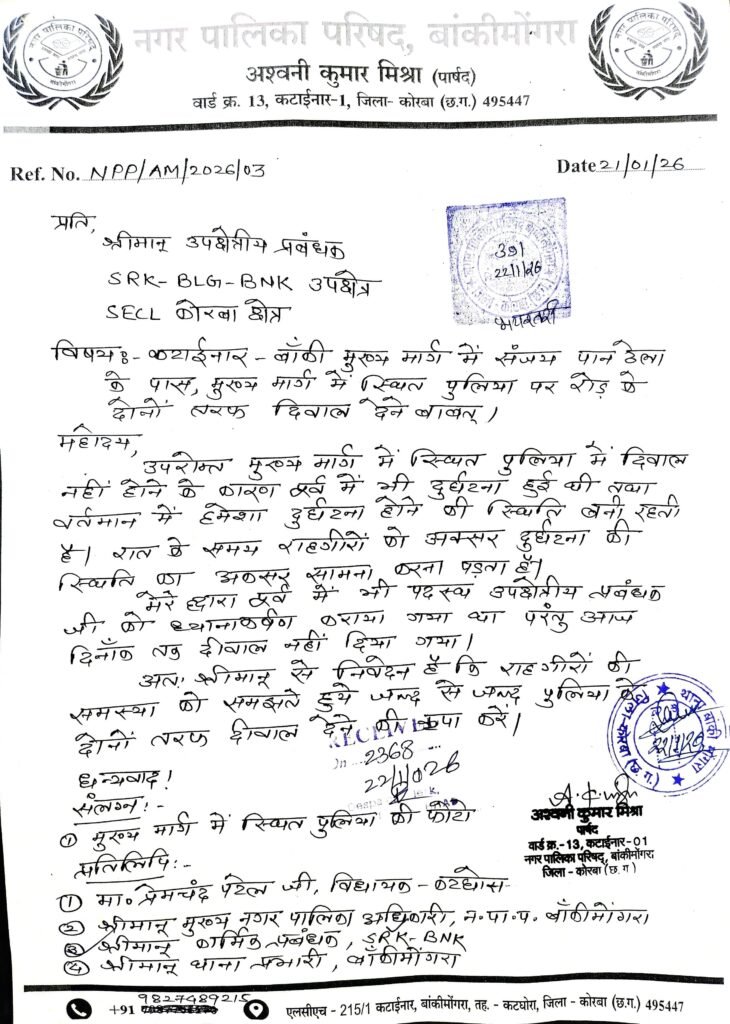 नगर पालिका परिषद, बांकीमोंगरा
अश्वनी कुमार मिश्रा (पार्षद)
वार्ड क्र. 13, कटाईनार-1, जिला- कोरबा (छ.ग.) 495447
Ref. No. NPP/AM/2026/03
Date 21/01/26
प्रति,
श्रीमान् उपक्षेत्रीय प्रबंधक
SRK-BLG-BNK उपक्षेत्र
SECL कोरबा क्षेत्र
391
22/1/26
विषयः- कटाईनार - बाँकी मुख्य मार्ग में संजय पान ठेला
के पास, मुख्य मार्ग में स्थित पुलिया पर रोड़ के
दोनों तरफ दिवाल देने बाबत्।
महोदय,
उपरोक्त मुख्य मार्ग में स्थित पुलिया में दिवाल
नहीं होने के कारण पूर्व में भी दुर्घटना हुई थी तथा
वर्तमान में हमेशा दुर्घटना होने की स्थिति बनी रहती
है। रात के समय राहगीरों को अक्सर दुर्घटना की
स्थिति का अक्सर सामना करना पड़ता है।
मेरे द्वारा पूर्व में भी पदस्थ उपक्षेत्रीय प्रबंधक
जी को ध्यानाकर्षण कराया गया था परंतु आज
दिनाँक तक दीवाल नहीं दिया गया।
अतः श्रीमान् से निवेदन है कि राहगीरों की
समस्या को समझते हुये जल्द से जल्द पुलिया के
दोनों तरफ दीवाल देने की कृपा करें।
RECEIVED
2368
22/1/2026
धन्यवाद!
संलग्न:-
① मुख्य मार्ग में स्थित पुलिया की फोटो
22/1/26
अश्वनी कुमार मिश्रा
पार्षद
वार्ड क्र.-13, कटाईनार-01
नगर पालिका परिषद, बांकीमोंगरा
जिला - कोरबा (छ.ग)
प्रतिलिपि:-
① मा. प्रेमचंद पटेल जी, विधायक - कटघोरा
② श्रीमान् मुख्य नगर पालिका अधिकारी, न.पा.प. बाँकीमोंगरा
③ श्रीमान् कार्मिक प्रबंधक, SRK-BNK
④ श्रीमान् थाना प्रभारी, बाँकीमोंगरा
+91 9827489215
एलसीएच - 215/1 कटाईनार, बांकीमोंगरा, तह. - कटघोरा, जिला - कोरबा (छ.ग.) 495447